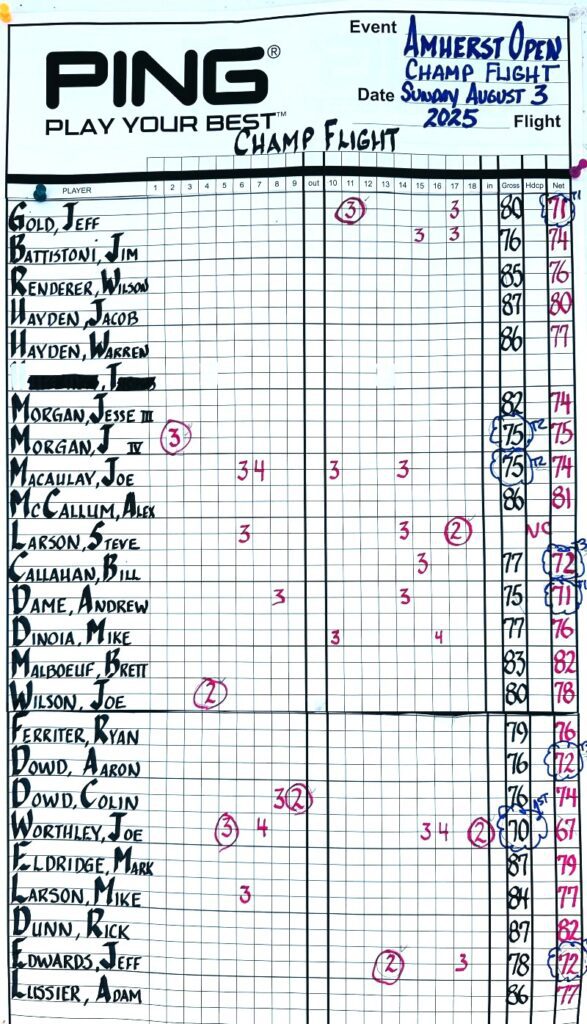 Event AMHERST OPEN
PING®
CHAMP FLIGHT
Date SUNDAY AUGUST 3
PLAY YOUR BEST™ 2025 Flight
CHAMP FLIGHT
PLAYER 1 2 3 4 5 6 7 8 9 out 10 11 12 13 14 15 16 17 18 in Gross Hdcp Net
GOLD, JEFF 3 3 80 71 T1
BATTISTONI, JIM 3 3 76 74
RENDERER, WILSON 85 76
HAYDEN, JACOB 87 80
HAYDEN, WARREN 86 77
MORGAN, JESSE III 82 74
MORGAN, J IV 3 75 T2 75
MACAULAY, JOE 3 4 3 3 75 T2 74
MCCALLUM, ALEX 86 81
LARSON, STEVE 3 3 2 NC
CALLAHAN, BILL 3 77 72 T3
DAME, ANDREW 3 3 75 71 T1
DINOIA, MIKE 3 4 77 76
MALBOEUF, BRETT 83 82
WILSON, JOE 2 80 78
FERRITER, RYAN 79 76
DOWD, AARON 76 72 T3
DOWD, COLIN 3 2 76 74
WORTHLEY, JOE 3 4 3 4 2 70 1ST 67
ELDRIDGE, MARK 87 79
LARSON, MIKE 3 84 77
DUNN, RICK 87 82
EDWARDS, JEFF 2 3 78 72
LUSSIER, ADAM 86 77